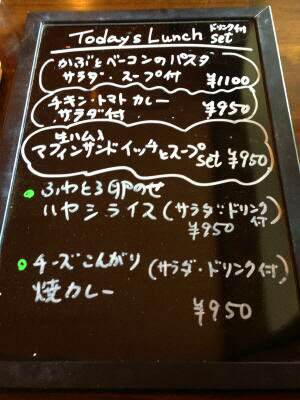 Today's Lunch ドリンク付 set
かぶとベーコンのパスタ
サラダ・スープ付 ¥1100
チキン・トマトカレー
サラダ付 ¥950
生ハム入
マフィンサンドイッチとスープ
set ¥950
ふわとろ卵のせ
ハヤシライス (サラダ・ドリンク付)
¥950
チーズこんがり (サラダ・ドリンク付)
焼カレー
¥950